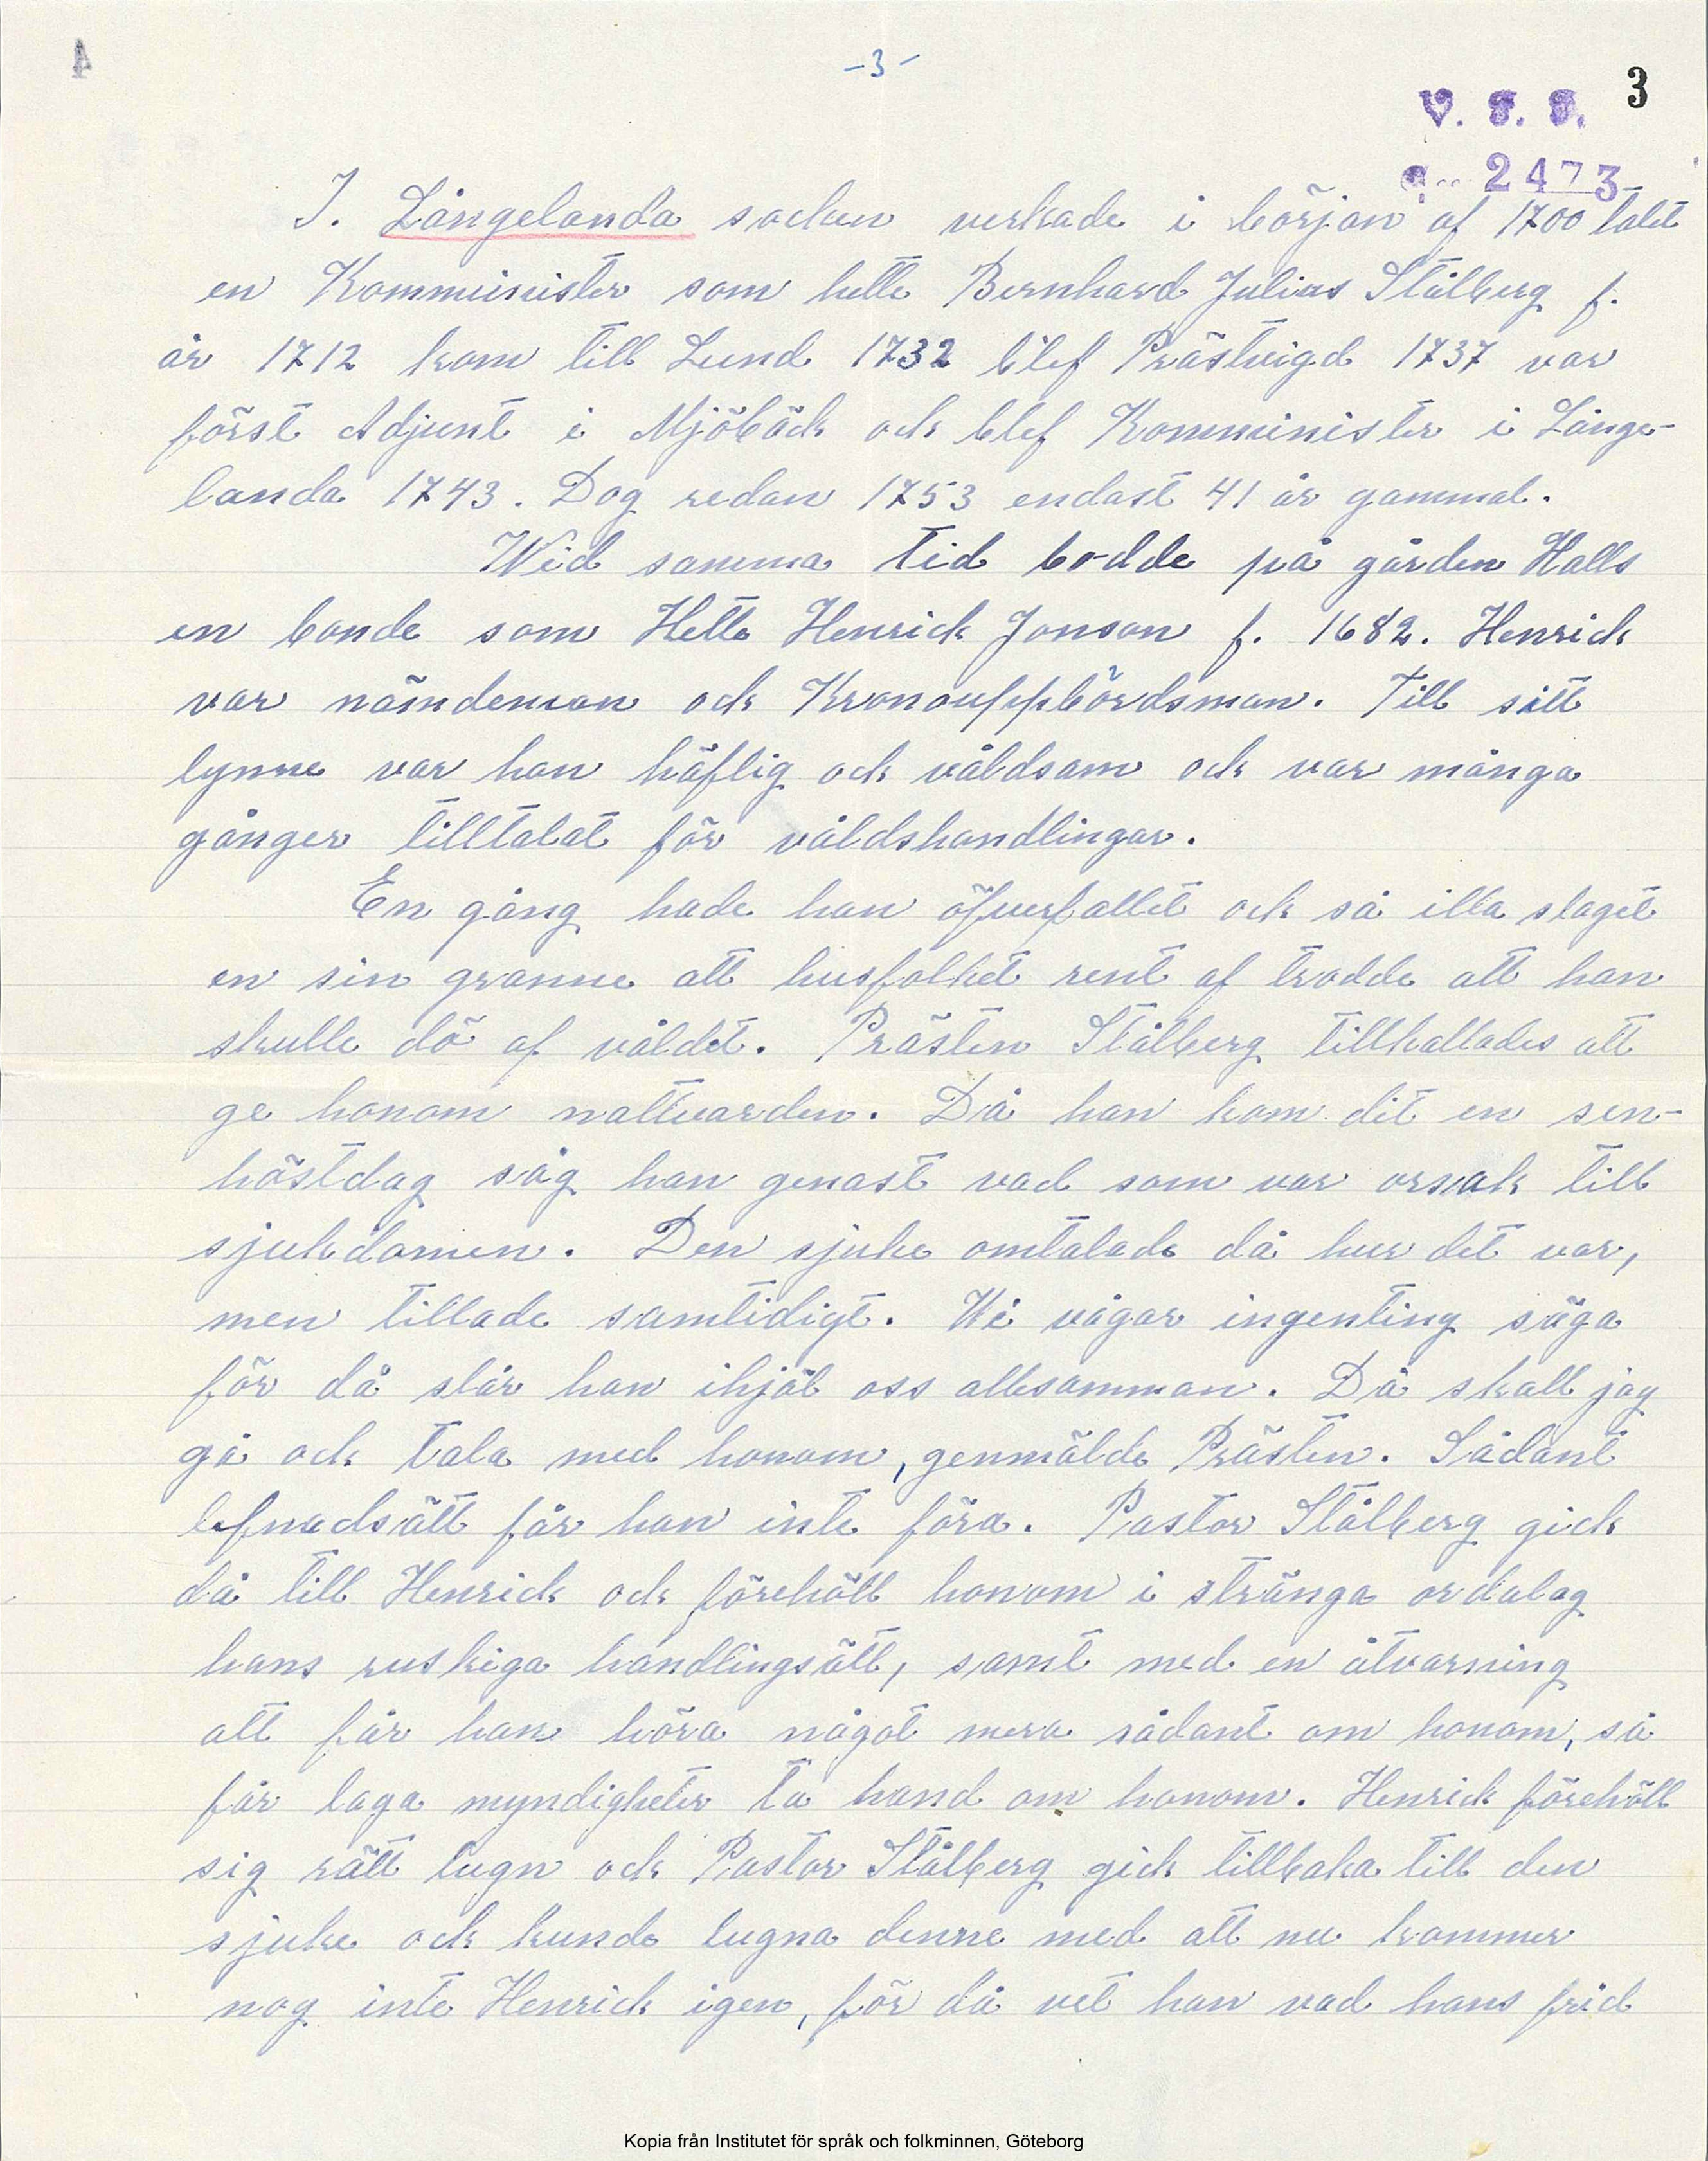 -3-
3
V. F. F.
2473
I. Långelanda socken verkade i början af 1700 talet
en Komminister som hette Bernhard Julius Stålberg f.
år 1712 kom till Lund 1732 blef Prästvigd 1737 var
först Adjunt i Mjöbäck och blef Komminister i Långe-
landa 1743. Dog redan 1753 endast 41 år gammal.
Wid samma tid bodde på gården Halls
en bonde som Hette Henrick Jonson f. 1682. Henrick
var nämdeman och Kronouppbördsman. Till sitt
lynne var han häflig och våldsam och var många
gånger tilltalat för våldshandlingar.
En gång hade han öfverfallet och så illa slaget
en sin granne att husfolket rent af trodde att han
skulle dö af våldet. Prästen Stålberg tillkallades att
ge honom nattvarden. Då han kom dit en sen-
höstdag såg han genast vad som var orsak till
sjukdomen. Den sjuke omtalade då hur det var,
men tillade samtidigt. Wi vågar ingenting säga
för då slår han ihjäl oss allesamman. Då skall jag
gå och tala med honom, genmälde Prästen. Sådant
lefnadsätt får han inte föra. Pastor Stålberg gick
då till Henrick och förehöll honom i stränga ordalag
hans ruskiga handlingsätt, samt med en åtvarning
att får han höra något mera sådant om honom, så
får laga myndigheter ta hand om honom. Henrick förehöll
sig rätt lugn och Pastor Stålberg gick tillbaka till den
sjuke och kunde lugna denne med att nu kommer
nog inte Henrick igen, för då vet han vad hans frid
Kopia från Institutet för språk och folkminnen, Göteborg